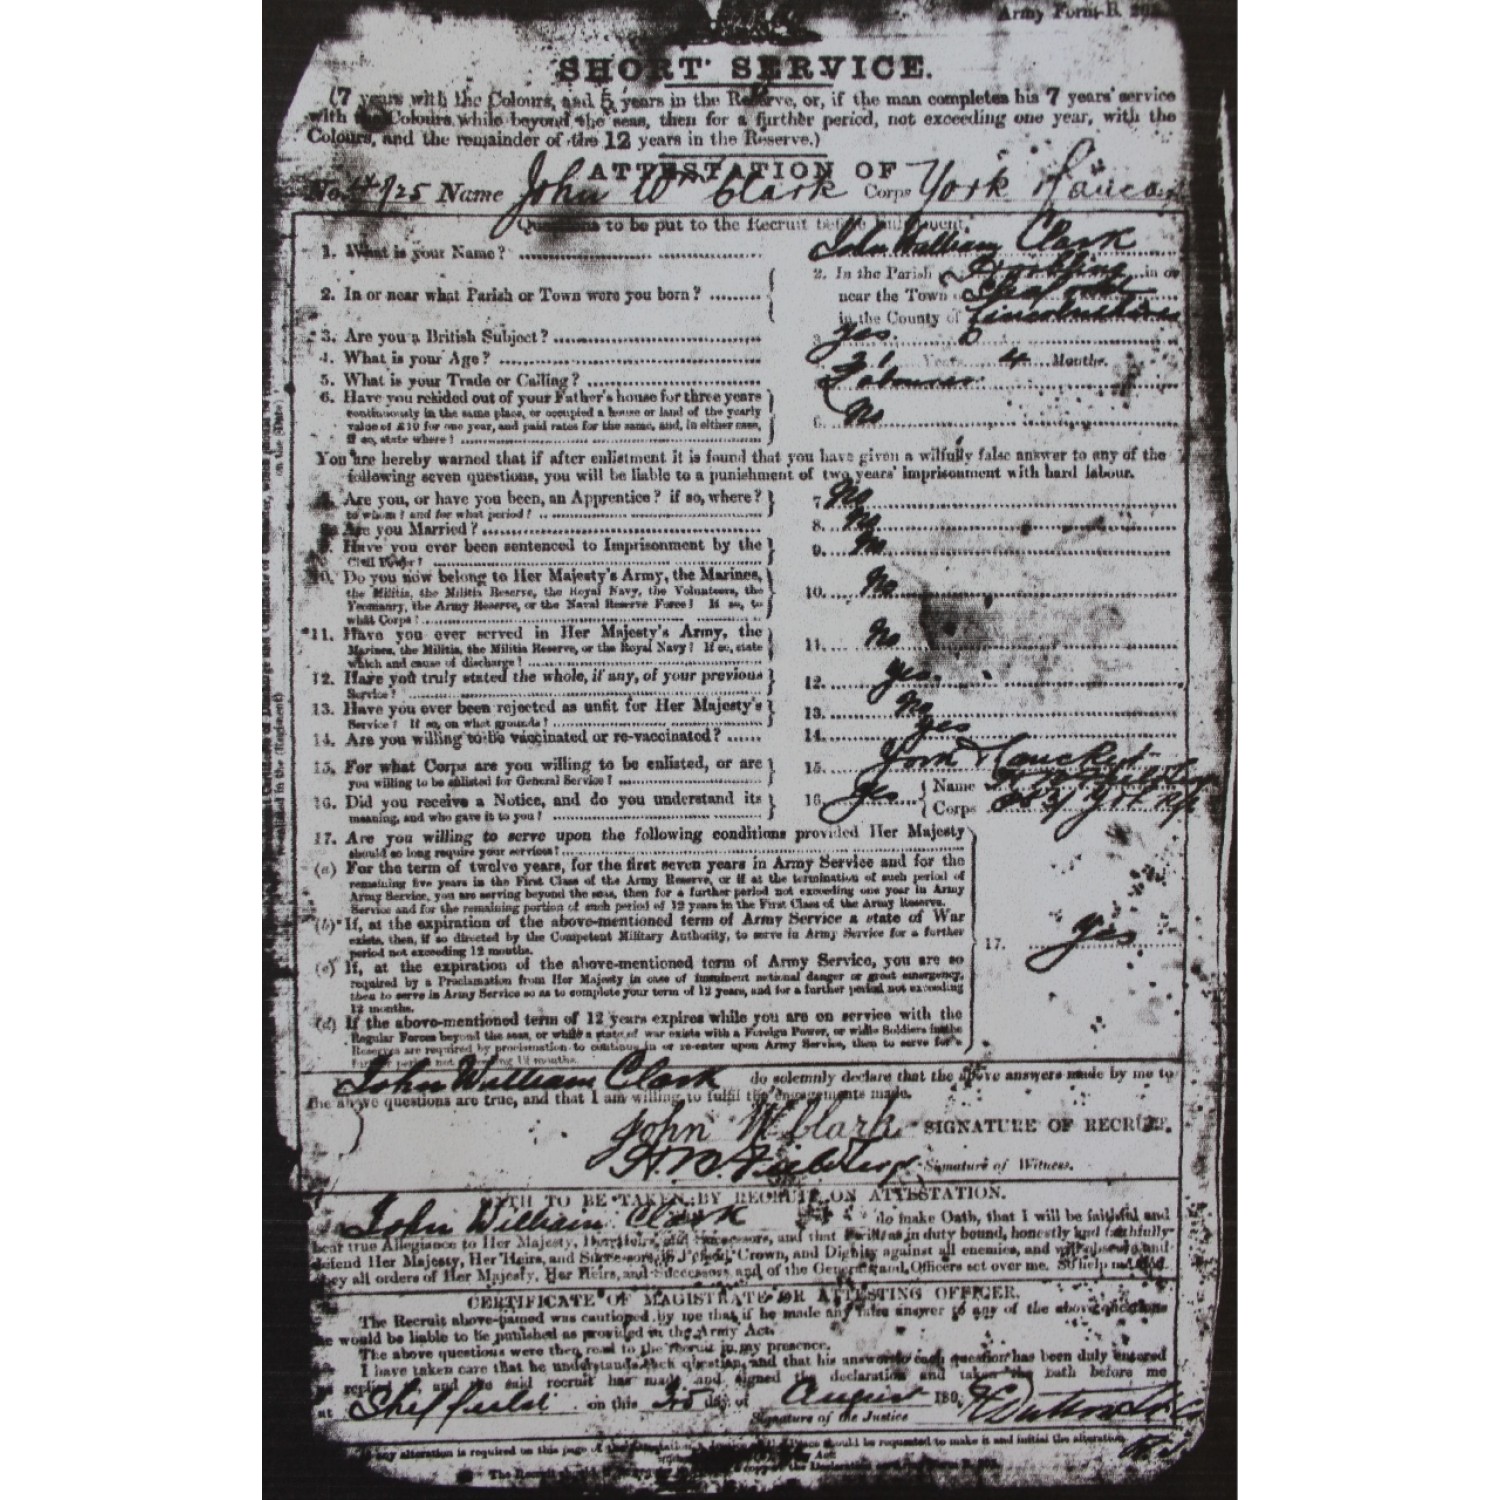 Army Form B.
SHORT SERVICE.
(7 years with the Colours, and 5 years in the Reserve, or, if the man completes his 7 years' service
with the Colours while beyond the seas, then for a further period, not exceeding one year, with the
Colours, and the remainder of the 12 years in the Reserve.)
ATTESTATION OF
No. Name John Wm Clark Corps York & Lancas
Questions to be put to the Recruit before enlistment.
1. What is your Name? John William Clark
2. In or near what Parish or Town were you born? 2. In the Parish in or
near the Town of
in the County of Lincolnshire
3. Are you a British Subject? 3. Yes
4. What is your Age? 21 Years 4 Months.
5. What is your Trade or Calling? Labourer
6. Have you resided out of your Father's house for three years
continuously in the same place, or occupied a house or land of the yearly
value of £10 for one year, and paid rates for the same, and, in either case,
if so, state where? 6. No
You are hereby warned that if after enlistment it is found that you have given a wilfully false answer to any of the
following seven questions, you will be liable to a punishment of two years' imprisonment with hard labour.
Are you, or have you been, an Apprentice? if so, where? 7 No
to whom? and for what period?
Are you Married? 8. No
9. Have you ever been sentenced to Imprisonment by the 9. No
Civil Power?
10. Do you now belong to Her Majesty's Army, the Marines,
the Militia, the Militia Reserve, the Royal Navy, the Volunteers, the 10. No
Yeomanry, the Army Reserve, or the Naval Reserve Force? If so, to
what Corps?
*11. Have you ever served in Her Majesty's Army, the
Marines, the Militia, the Militia Reserve, or the Royal Navy? If so, state 11. No
which and cause of discharge?
12. Have you truly stated the whole, if any, of your previous 12. Yes
Service?
13. Have you ever been rejected as unfit for Her Majesty's 13. No
Service? If so, on what grounds?
14. Are you willing to be vaccinated or re-vaccinated? 14. Yes
15. For what Corps are you willing to be enlisted, or are 15. York & Lanc Regt
you willing to be enlisted for General Service?
16. Did you receive a Notice, and do you understand its 16. Yes Name
meaning, and who gave it to you? Corps
17. Are you willing to serve upon the following conditions provided Her Majesty
should so long require your services?
(a) For the term of twelve years, for the first seven years in Army Service and for the
remaining five years in the First Class of the Army Reserve, or if at the termination of such period of
Army Service, you are serving beyond the seas, then for a further period not exceeding one year in Army
Service and for the remaining portion of such period of 12 years in the First Class of the Army Reserve.
(b) If, at the expiration of the above-mentioned term of Army Service a state of War
exists, then, if so directed by the Competent Military Authority, to serve in Army Service for a further
period not exceeding 12 months. 17. Yes
(c) If, at the expiration of the above-mentioned term of Army Service, you are so
required by a Proclamation from Her Majesty in case of imminent national danger or great emergency,
then to serve in Army Service so as to complete your term of 12 years, and for a further period not exceeding
12 months.
(d) If the above-mentioned term of 12 years expires while you are on service with the
Regular Forces beyond the seas, or while a state of war exists with a Foreign Power, or while Soldiers in the
Reserves are required by proclamation to continue in or re-enter upon Army Service, then to serve for a
further period not exceeding 12 months.
John William Clark do solemnly declare that the above answers made by me to
the above questions are true, and that I am willing to fulfil the engagements made.
John W Clark SIGNATURE OF RECRUIT.
Signature of Witness.
OATH TO BE TAKEN BY RECRUIT ON ATTESTATION.
John William Clark do make Oath, that I will be faithful and
bear true Allegiance to Her Majesty, Her Heirs, and Successors, and that I will, as in duty bound, honestly and faithfully
defend Her Majesty, Her Heirs, and Successors, in Person, Crown, and Dignity against all enemies, and will observe and
obey all orders of Her Majesty, Her Heirs, and Successors, and of the Generals and Officers set over me. So help me God.
CERTIFICATE OF MAGISTRATE OR ATTESTING OFFICER.
The Recruit above-named was cautioned by me that if he made any false answer to any of the above questions
he would be liable to be punished as provided in the Army Act.
The above questions were then read to the recruit in my presence.
I have taken care that he understands each question, and that his answer to each question has been duly entered
as replied and the said recruit has made and signed the declaration and taken the oath before me
at Sheffield on this day of August 189
Signature of the Justice
any alteration is required on this page of the should be requested to make it and initial the alteration
The Recruit